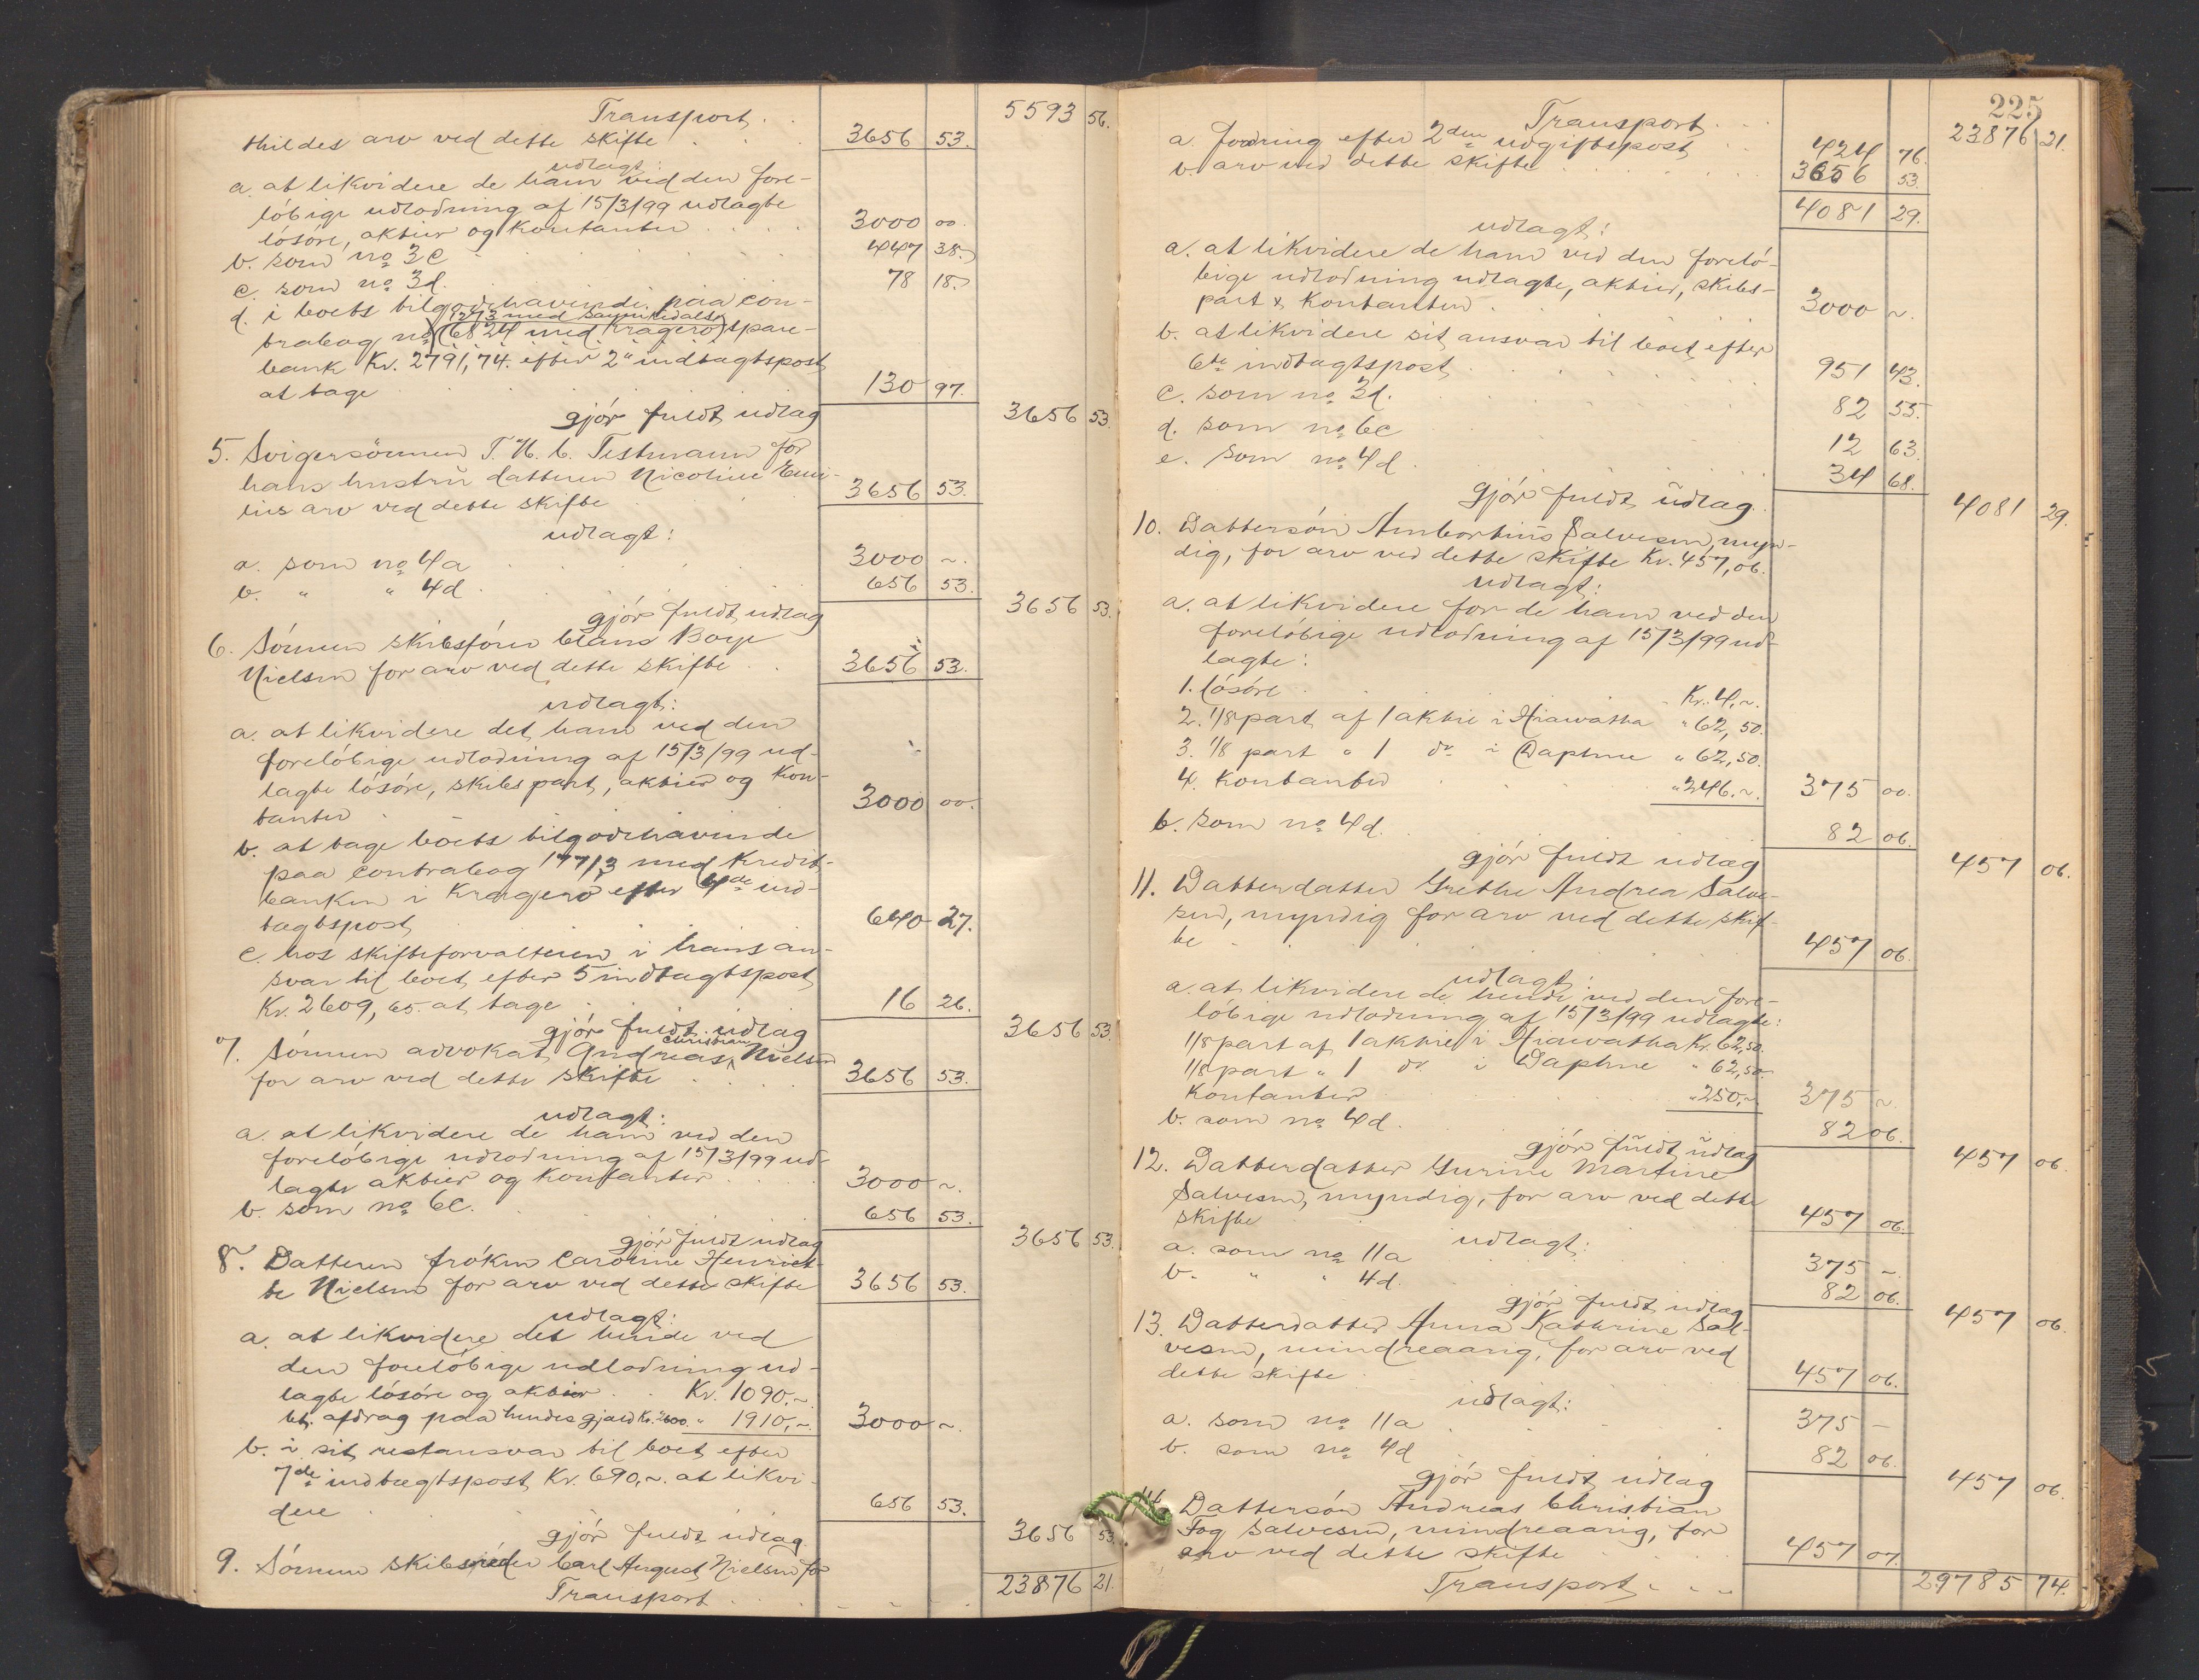 Transport . . 5593 56.
thildes arv ved dette skifte . . . 3656 53.
udlagt:
a. at likvidere de ham ved den fore-
løbige udlodning af 15/3/99 udlagte
løsøre, aktier og kontanter . . . . 3000 00.
b. som no 3c . . . 447 38.
c. som no 3d. . . . 78 18.
d. i boets tilgodehavende paa con-
1273 med Sannikedals
trabog no (6824 med Kragerø) spare-
bank Kr. 2791,74. efter 2" indtægtspost
at tage 130 97.
gjør fuldt udlag 3656 53.
5. Svigersønnen T. H. C. Testmann for
hans hustru datteren Nicoline Emi-
lies arv ved dette skifte 3656 53.
udlagt:
a. som no 4a . . . 3000 ~.
b. " " 4d . . . 656 53.
gjør fuldt udlag 3656 53.
6. Sønnen skibsfører Claus Boye
Nielsen for arv ved dette skifte . . 3656 53.
udlagt:
a. at likvidere det ham ved den
foreløbige udlodning af 15/3/99 ud-
lagte løsøre, skibspart, aktier og kon-
tanter . 3000 00.
b. at tage boets tilgodehavende
paa contrabog 1771/3 med Kredit-
banken i Kragerø efter 4de ind-
tægtspost 640 27.
c. hos skifteforvalteren i hans an-
svar til boet efter 5 indtægtspost
Kr. 2609,65. at tage . 16 26.
gjør fuldt udlag 3656 53.
Christian
7. Sønnen advokat Andreas Nielsen
for arv ved dette skifte . . . 3656 53.
udlagt:
a. at likvidere de ham ved den
foreløbige udlodning af 15/3/99 ud-
lagte aktier og kontanter . . . . 3000 ~.
b. som no 6c. . 656 53.
gjør fuldt udlag 3656 53.
8. Datteren frøken Caroline Henriet-
te Nielsen for arv ved dette skifte 3656 53.
udlagt:
a. at likvidere det hende ved
den foreløbige udlodning ud-
lagte løsøre og aktier . . Kr. 1090,~.
bt. afdrag paa hendes gjæld Kr. 2600. " 1910,~. 3000 ~.
b. i sit restansvar til boet efter
7de indtægtspost Kr. 690,~. at likvi-
dere . 656 53.
gjør fuldt udlag. 3656 53.
9. Sønnen skibsreder Carl August Nielsen for
Transport . . . . . 23876 21.
225
Transport . . . 23876 21.
a. fordring efter 2den udgiftspost . . 424 76.
b. arv ved dette skifte . . . . . 3656 53.
4081 29.
udlagt:
a. at likvidere de ham ved den forelø-
bige udlodning udlagte, aktier, skibs-
part & kontanter . . . . 3000 ~.
b. at likvidere sit ansvar til boet efter
6te indtægtspost . . . . 951 43.
c. som no 3d. . . . 82 55.
d. som no 6c . . . 12 63.
e. som no 4d . . . 34 68.
gjør fuldt udlag. 4081 29.
10. Dattersøn Ambortius Salvesen, myn-
dig, for arv ved dette skifte Kr. 457,06.
udlagt:
a. at likvidere for de ham ved den
foreløbige udlodning af 15/3/99 ud-
lagte:
1. løsøre . . Kr. 4,~.
2. 1/8 part af 1 aktie i Hiawatha " 62,50.
3. 1/8 part " 1 do i Daphne " 62,50.
4. Kontanter . . . " 246.~. 375 00.
b. som no 4d. . . . 82 06.
gjør fuldt udlæg 457 06.
11. Datterdatter Grethe Andrea Salve-
sen, myndig for arv ved dette skif-
te . . . . 457 06.
udlagt:
a. at likvidere de hende ved den fore-
løbige udlodning af 15/3/99 udlagte:
1/8 part af 1 aktie i Hiawatha Kr. 62,50.
1/8 part " 1 do i Daphne " 62,50.
Kontanter . . . " 250,~ 375 ~.
b. som no 4d. . . . 82 06.
gjør fuldt udlag 457 06.
12. Datterdatter Gurine Martine
Salvesen, myndig, for arv ved dette
skifte . 457 06.
udlagt:
a. som no 11a . . . 375 ~.
b. " " 4d. . . 82 06.
gjør fuldt udlag 457 06.
13. Datterdatter Anna Kathrine Sal-
vesen, mindreaarig, for arv ved
dette skifte . 457 06.
udlagt:
a. som no 11a . . . 375 –
b. som no 4d . . . 82 06.
gjør fuldt udlag 457 06.
14. Dattersøn Andreas Christian
Fog Salvesen, mindreaarig, for
arv ved dette skifte . . . 457 07.
Transport . . . 29785 74.